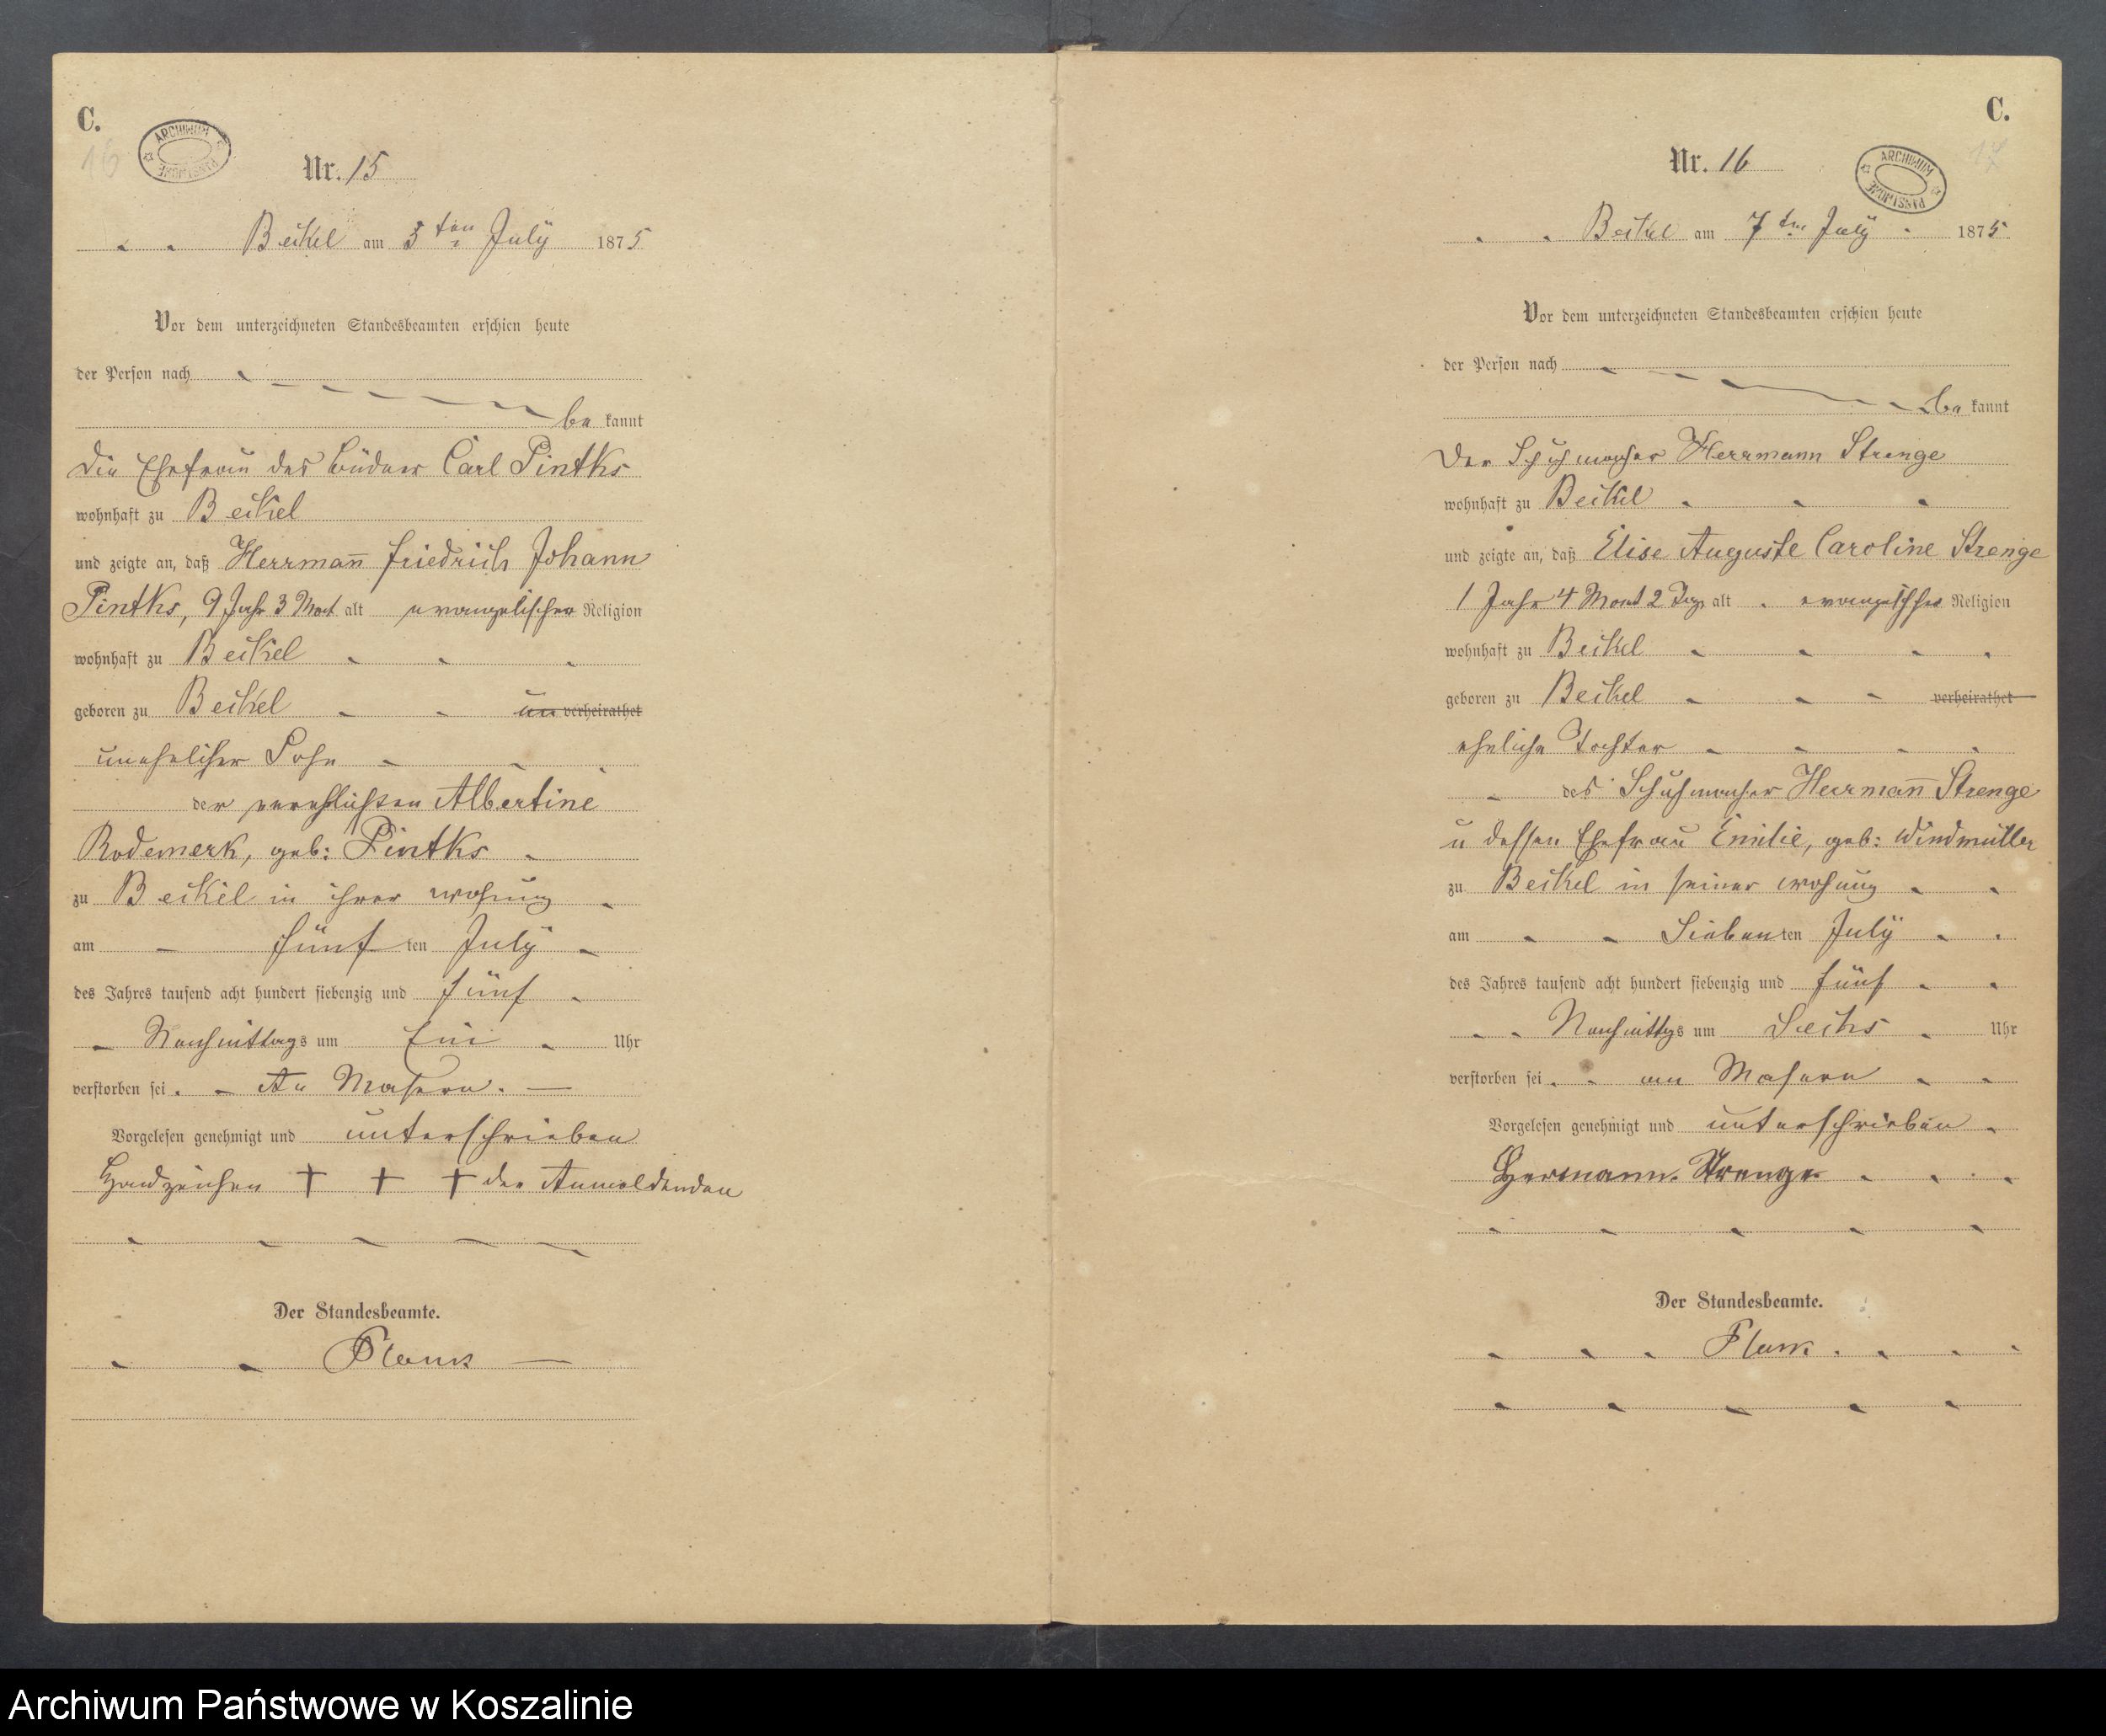 C.
16
ARCHIWUM PAŃSTWOWE
Nr. 15
Beikel am 5ten July 1875
Vor dem unterzeichneten Standesbeamten erschien heute
der Person nach
be kannt
Die Ehefrau des Büdner Carl Pintks
wohnhaft zu Beikel
und zeigte an, daß Herrmañ Friedrich Johann
Pintks, 9 Jahr 3 Mont alt evangelischer Religion
wohnhaft zu Beikel
geboren zu Beikel un verheirathet
unehelicher Sohn
der verehlichten Albertine
Rodemerk, geb: Pintks
zu Beikel in ihrer Wohnung
am fünf ten July
des Jahres tausend acht hundert siebenzig und fünf
Nachmittags um Ein Uhr
verstorben sei. An Masern.
Vorgelesen genehmigt und unterschrieben
Handzeichen † † † der Anmeldenden
Der Standesbeamte.
Plank
C.
17
ARCHIWUM PAŃSTWOWE
Nr. 16
Beikel am 7ten July 1875
Vor dem unterzeichneten Standesbeamten erschien heute
der Person nach
be kannt
Der Schuhmacher Herrmann Strenge
wohnhaft zu Beikel
und zeigte an, daß Elise Auguste Caroline Strenge
1 Jahr 4 Mont 2 Tage alt evangelischer Religion
wohnhaft zu Beikel
geboren zu Beikel verheirathet
eheliche Tochter
des Schuhmacher Herrmañ Strenge
u dessen Ehefrau Emilie, geb: Windmüller
zu Beikel in seiner Wohnung
am Sieben ten July
des Jahres tausend acht hundert siebenzig und fünf
Nachmittgs um Sechs Uhr
verstorben sei. an Masern
Vorgelesen genehmigt und unterschrieben
Hermann. Strenge
Der Standesbeamte.
Plank.
Archiwum Państwowe w Koszalinie